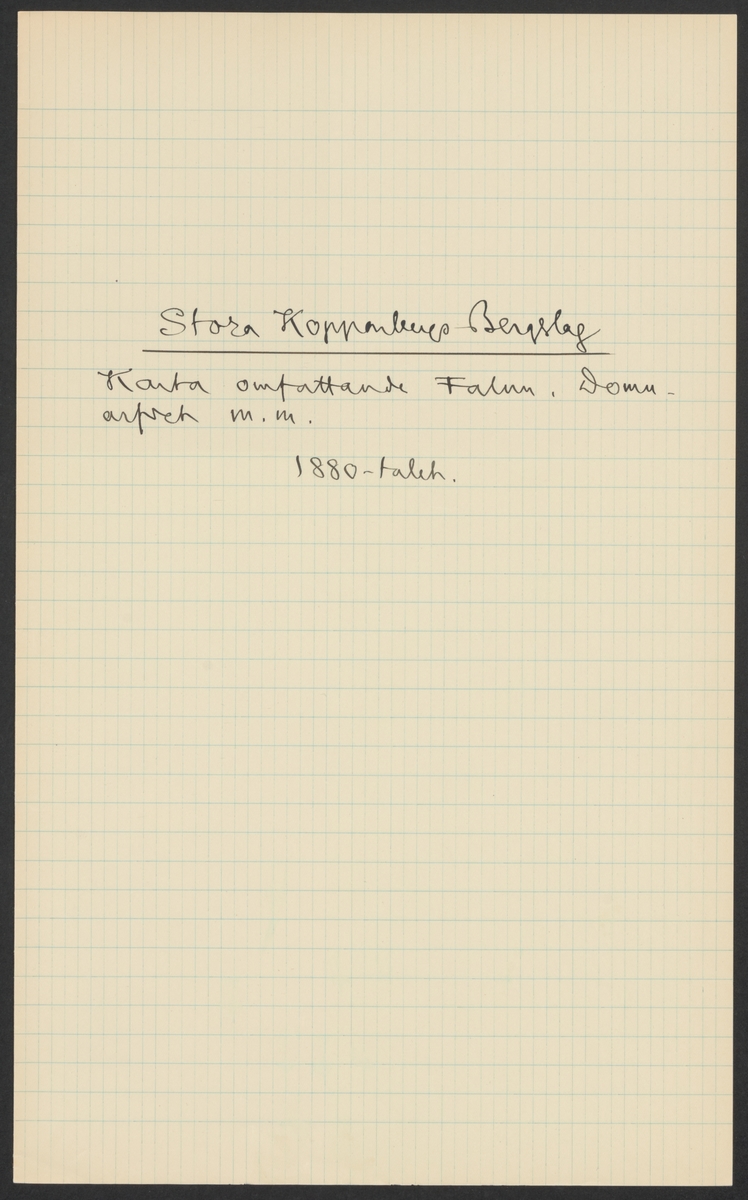 Stora Kopparbergs Bergslag
Karta omfattande Falun, Domn-
arfvet m.m.
1880-talet.